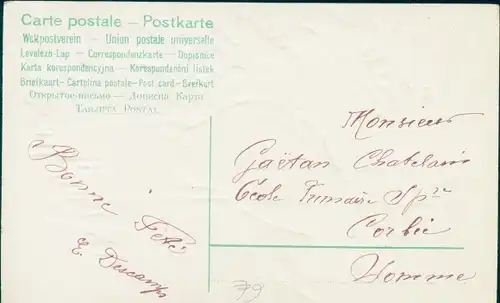 Carte postale — Postkarte
Weltpostverein - Union postale universelle
Levelezo-Lap — Correspondenzkarte — Dopisnice
Karta korespondencyjna — Korespondenční lístek
Briefkaart — Cartolina postale — Post card — Brefkort
Открытое письмо — Дописна Карта
Tarjeta Postal
Monsieur
Gaëtan Chatelain
École Primaire Spre
Corbie
Somme
Bonne Fête
E. Descamps
79